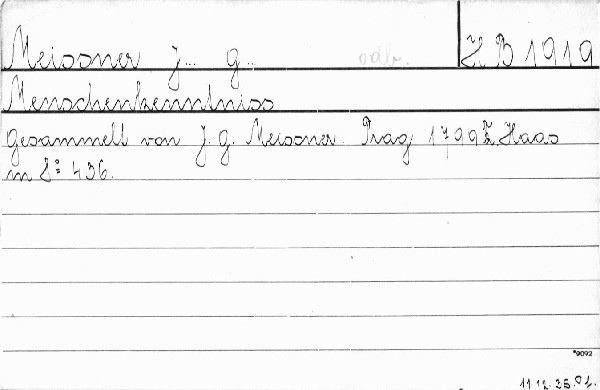 Meissner J.. G.. odb. ZB 1919
Menschenkenntniss
Gesammelt von J. G. Meissner. Prag 1799 Haas
m 8° 436.
*9092
11.12.35.